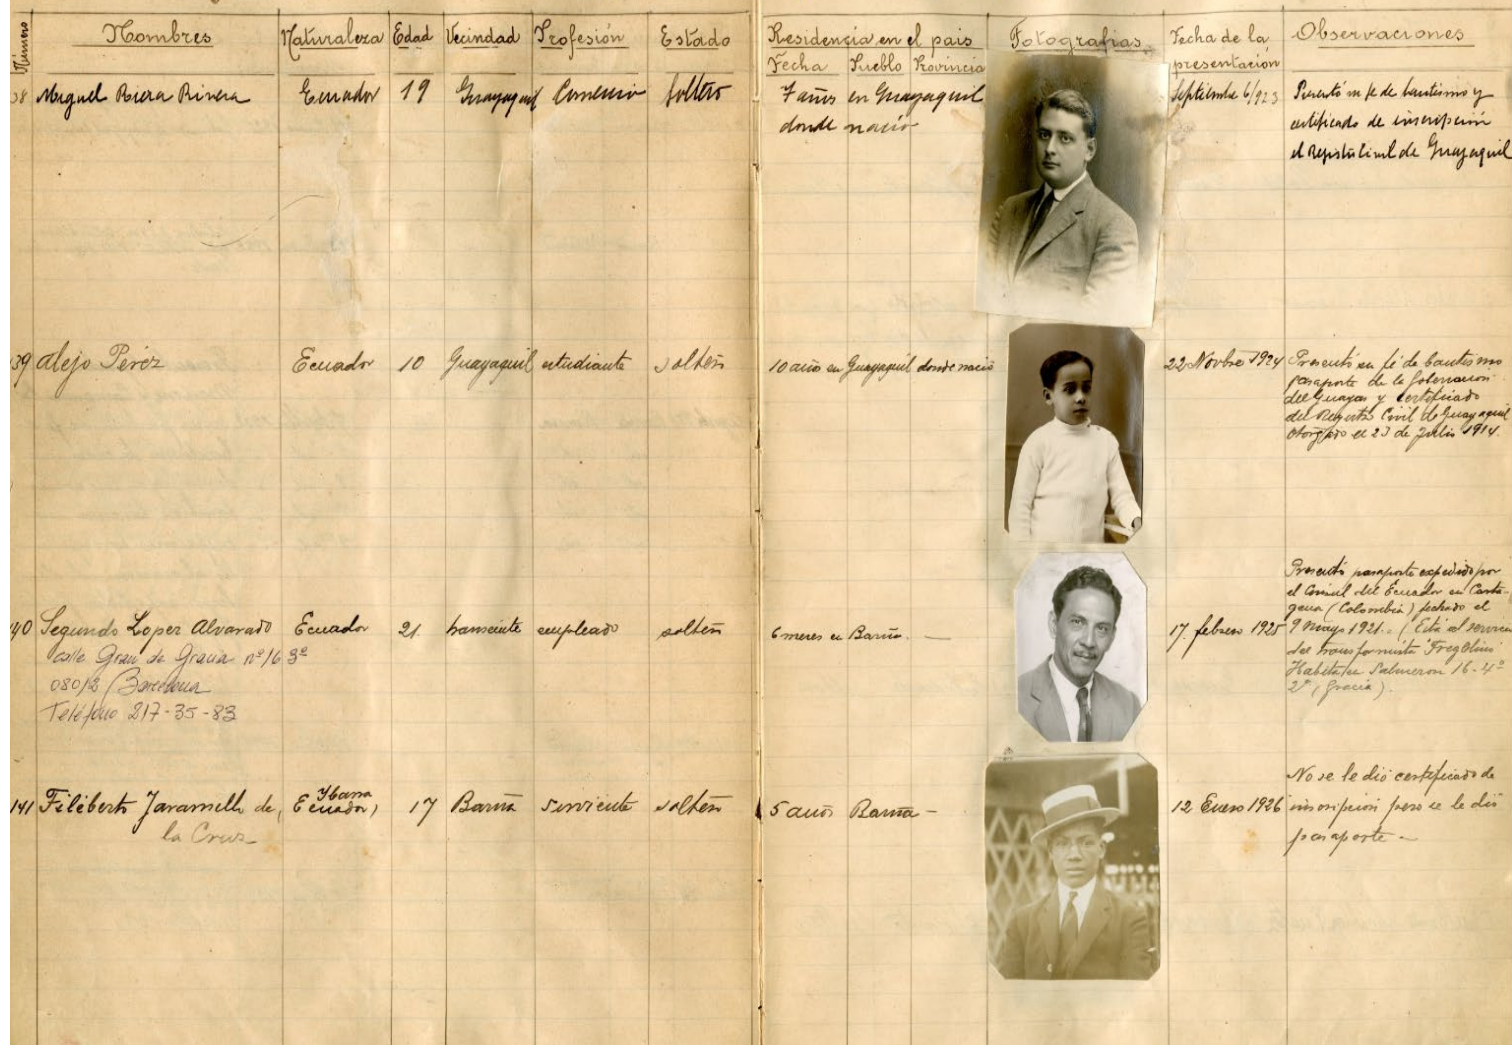 Número Nombres Naturaleza Edad Vecindad Profesión Estado Residencia en el pais Fotografias Fecha de la presentación Observaciones
Fecha Pueblo Provincia
38 Miguel Riera Rivera Ecuador 19 Guayaquil Comercio soltero 7 años en Guayaquil Septiembre 6/923 Presentó su fe de bautismo y
donde nació certificado de inscripción
el Regist Civil de Guayaquil
39 Alejo Pérez Ecuador 10 Guayaquil estudiante soltero 10 años en Guayaquil donde nació 22 Novbre 1924 Presentó su fé de bautismo
pasaporte de la Gobernacion
del Guayas y certificado
del Registro Civil de Guayaquil
otorgado el 23 de Julio 1914.
140 Segundo Lopez Alvarado Ecuador 21 transeunte empleado soltero 6 meses en Barna. — 17 febrero 1925 Presentó pasaporte expedido por
el Consul del Ecuador en Carta-
gena (Colombia) fechado el
9 mayo 1921. (Está al servicio
del transformista Fregolini
Habita en Salmeron 16-4º
2ª (Gracia).
calle Gran de Gracia nº 16 3º
08012 Barcelona
Teléfono 217-35-83
141 Filiberto Jaramillo de la Cruz Ibarra Ecuador) 17 Barna sirviente soltero 5 años Barna — 12 Enero 1926 No se le dió certificado de
inscripción pero se le dió
pasaporte —